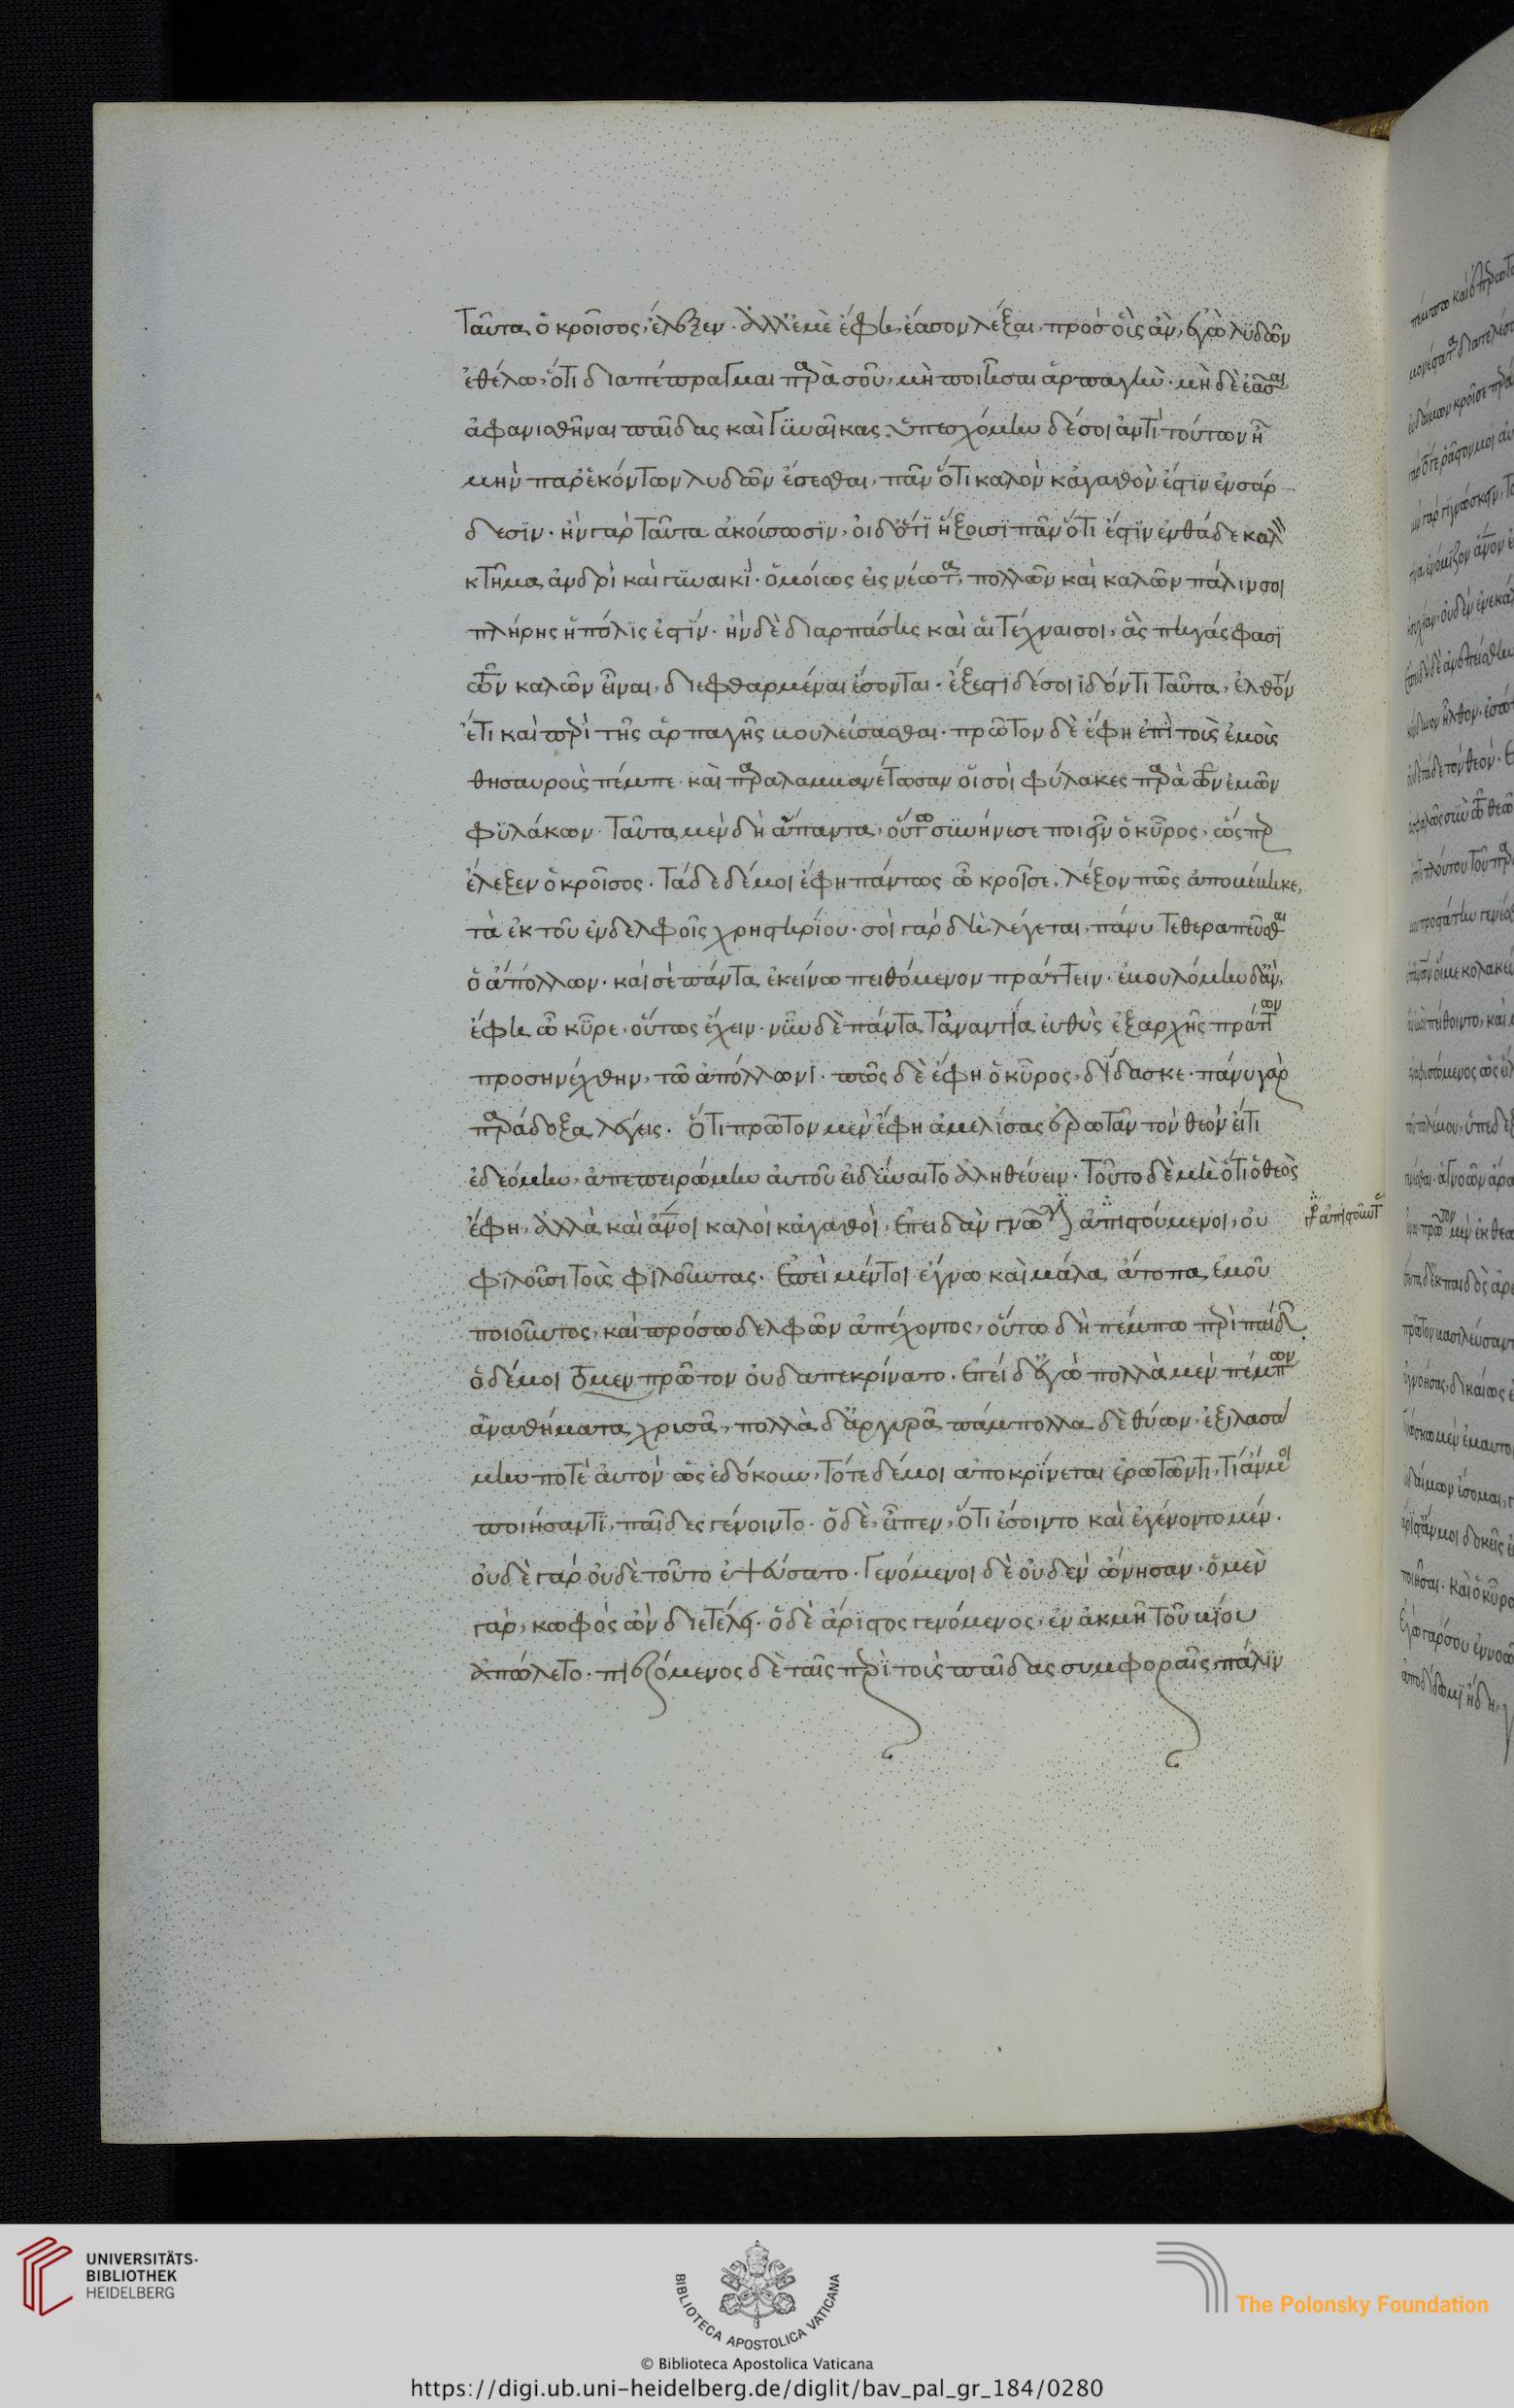 ταῦτα ὁ κροῖσος, ἔλεξεν. ἀλλ' ἐμὲ ἔφη ἔασον λέξαι, πρὸς οἷς ἂν, ἐγὼ λυδῶν
ἐθέλω, ὅτι διαπέπραγμαι παρὰ σοῦ, μὴ ποιῆσαι ἁρπαγὴν. μὴ δὲ ἐᾶσαι
ἀφανισθῆναι παῖδας καὶ γυναῖκας. ὑπεσχόμην δέ σοι ἀντὶ τούτων ἦ
μὴν παρ' ἑκόντων λυδῶν ἔσεσθαι, πᾶν ὅτι καλὸν κἀγαθὸν ἐστιν ἐν σάρ
δεσϊν. ἢν γὰρ ταῦτα ἀκούσωσϊν, οἶδ' ὅτϊ ἥξουσϊ πᾶν ὅτι ἐστϊν ἐνθάδε καλὸν
κτῆμα ἀνδρὶ καὶ γυναικὶ. ὁμοίως εἰς νέωτα, πολλῶν καὶ καλῶν πάλιν σοι
πλήρης ἡ πόλϊς ἐστϊν. ἢν δὲ διαρπάσης καὶ αἱ τέχναι σοι, ἃς πηγάς φασϊ
τῶν καλῶν εἶναι, διεφθαρμέναι ἔσονται. ἐξέσται δέ σοι ἰδόντι ταῦτα, ἐλθόν
ἔτι καὶ περὶ τῆς ἁρπαγῆς βουλεύσασθαι. πρῶτον δὲ ἔφη ἐπὶ τοὺς ἐμοὺς
θησαυροὺς πέμπε καὶ παραλαμβανέτωσαν οἱ σοὶ φύλακες παρὰ τῶν ἐμῶν
φϋλάκων. ταῦτα μὲν δὴ ἅπαντα, οὕτω συνήνεσε ποιεῖν ὁ κῦρος, ὥσπερ
ἔλεξεν ὁ κροῖσος. τάδε δέ μοι ἔφη πάντως ὦ κροῖσε, λέξον πῶς ἀποβέβηκε,
τὰ ἐκ τοῦ ἐν δελφοῖς χρηστηρίου. σοὶ γὰρ δὴ λέγεται, πάνυ τεθεραπεῦσθαι
ὁ ἀπόλλων. καί σε πάντα ἐκείνω πειθόμενον πράττειν. ἐβουλόμην δ' ἂν,
ἔφη ὦ κῦρε, οὕτως ἔχειν. νῦν δὲ πάντα τἀναντία εὐθὺς ἐξαρχῆς πράττων
προσηνέχθην, τῶ ἀπόλλωνι. πῶς δὲ ἔφη ὁ κῦρος, δίδασκε. πάνυ γὰρ
παράδοξα λέγεις. ὅτι πρῶτον μὲν ἔφη ἀμελήσας ἐρωτᾶν τὸν θεὸν εἴ τι
ἐδεόμην, ἀπεπειρώμην αὐτοῦ εἰ δύναιτο ἀληθεύειν. τοῦτο δὲ μὴ ὅτι ὁ θεὸς
ἔφη, ἀλλὰ καὶ ἄνοι καλοὶ κἀγαθοὶ, ἐπειδὰν γνῶ ἀπιστούμενοι, οὐ
φιλοῦσι τοὺς φιλοῦντας. ἐπεὶ μέντοι ἔγνω καὶ μάλα ἄτοπα ἐμοῦ
ποιοῦντος, καὶ πρόσω δελφῶν ἀπέχοντος, οὕτω δὴ πέμπω περὶ παίδων.
ὁ δέ μοι τὸ μεν πρῶτον οὐδ' ἀπεκρίνατο. ἐπεὶ δ' ἐγὼ πολλὰ μὲν πέμπων
ἀναθήματα χρυσᾶ, πολλὰ δ' ἀργυρᾶ πάμπολλα δὲ θύων, ἐξιλασά
μην ποτὲ αὐτὸν ὡς ἐδόκουν, τότε δέ μοι ἀποκρίνεται ἐρωτῶντι, τί ἄν μοι
ποιήσαντϊ, παῖδες γένοιντο. ὁ δὲ, εἶπεν, ὅτι ἔσοιντο καὶ ἐγένοντο μέν.
οὐδὲ γὰρ οὐδὲ τοῦτο ἐψεύσατο. γενόμενοι δὲ οὐδὲν ὤνησαν. ὁ μὲν
γὰρ, κωφὸς ὢν διετέλει. ὁ δὲ ἄριστος γενόμενος, ἐν ἀκμῆ τοῦ βίου
ἀπώλετο. πιεζόμενος δὲ ταῖς περὶ τοὺς παῖδας συμφοραῖς, πάλϊν
UNIVERSITÄTS-
BIBLIOTHEK
HEIDELBERG
BIBLIOTECA APOSTOLICA VATICANA
The Polonsky Foundation
© Biblioteca Apostolica Vaticana
https://digi.ub.uni-heidelberg.de/diglit/bav_pal_gr_184/0280